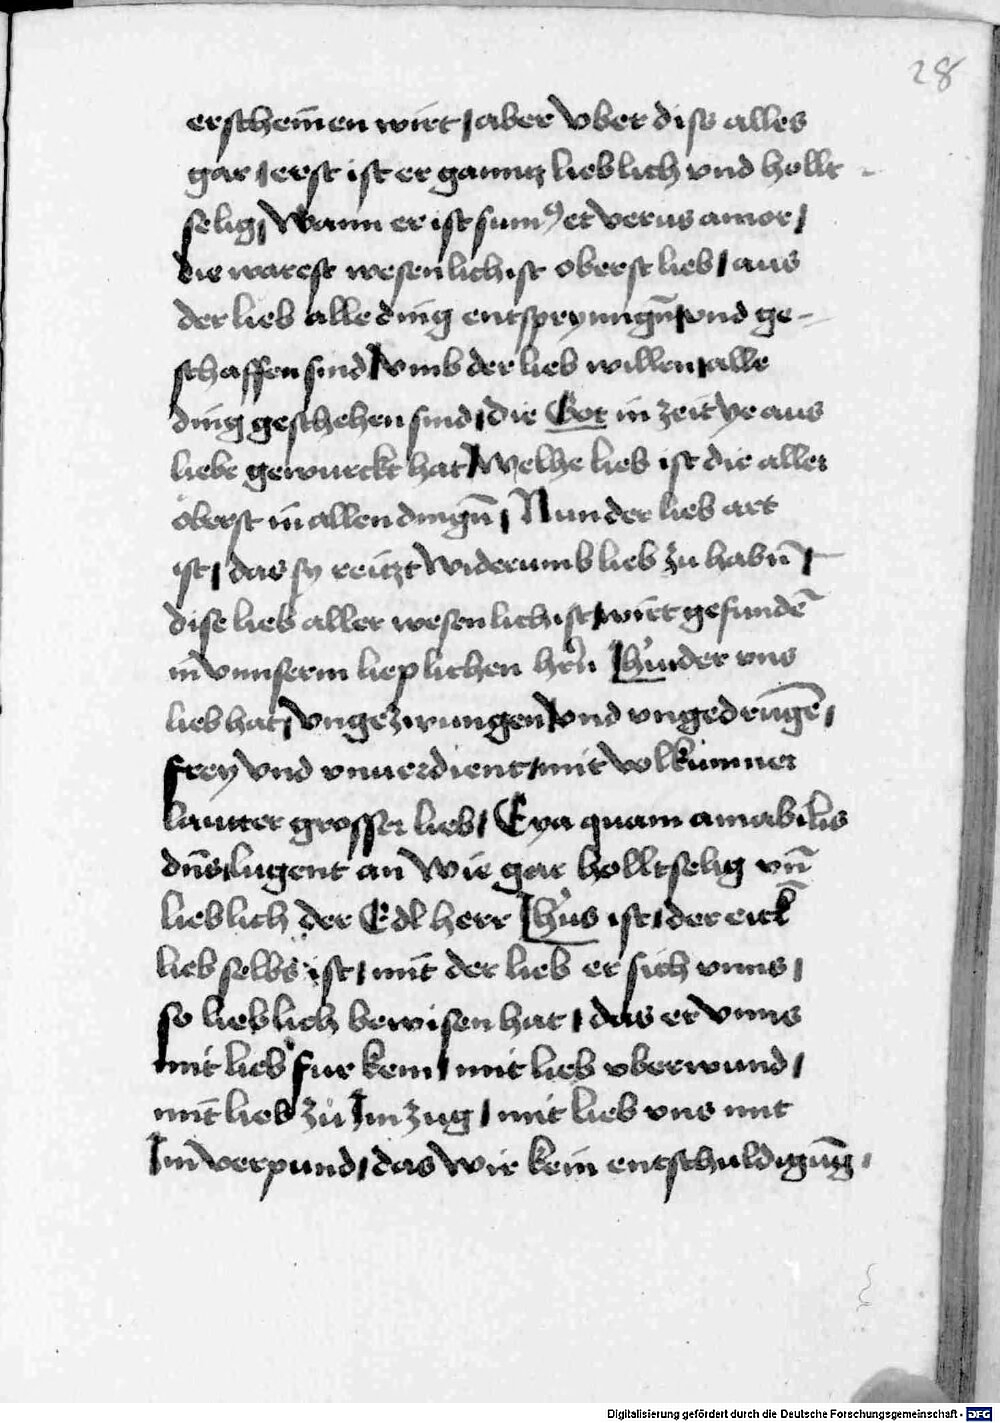 28
erscheinen wirt / aber vber diss alles
gar / erst ist er ganntz lieblich vnd hollt
selig / Wann er ist sum⁹ et verus amor /
die warest wesenlichist oberst lieb / aus
der lieb alle ding entspryungn̄ / vnd ge-
schaffen sind / vmb der lieb willen / alle
ding geschehen sind / die Got in zeit ye aus
liebe gewurckt hat / Welhe lieb ist die aller
oberst in allen dingn̄ / Nun der lieb art
ist / das sy reitzt widerumb lieb zu habn̄ /
dise lieb aller wesenlichist / wirt gefundē
in vnnserm lieplichen hrn̄ Jhū / der vns
lieb hat / vngezwungen / vnd vngedrūgē /
frey vnd vnuerdient / mit volkumner
lautter grosser lieb / Eya quam amabilis
dn̄s / lugent an wie gar holltselig vn̄
lieblich der Edl herr Jhūs ist / der
lieb selbs ist / mit der lieb er sich vnns /
so lieblich bewisen hat / das er vnns
mit lieb fur kem / mit lieb vberwund /
mit lieb zu Im zug / mit lieb vns mit
Im verpund / das wir kein entschuldigūg /
Digitalisierung gefördert durch die Deutsche Forschungsgemeinschaft - DFG